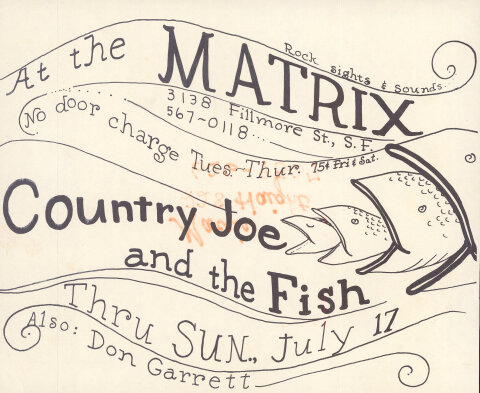 At the MATRIX
Rock sights & sounds...
3138 Fillmore St., S.F.
567-0118...
No door charge Tues.-Thur. 75¢ Fri & Sat.
Country Joe
and the Fish
Thru SUN., July 17
Also: Don Garrett